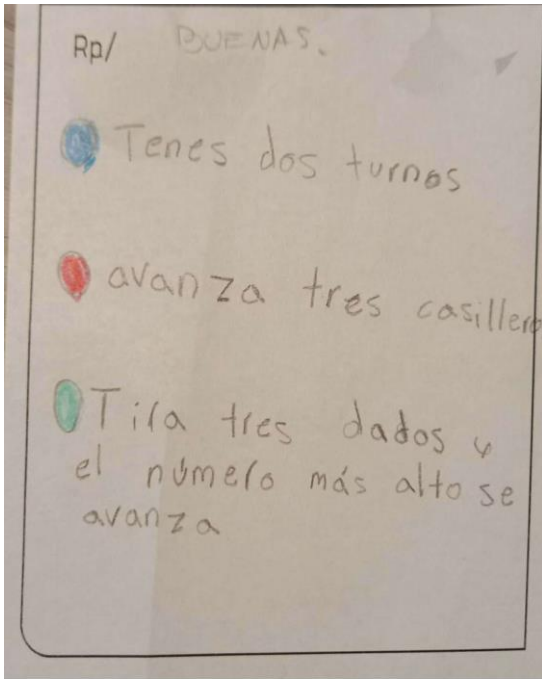 Rp/ BUENAS.
Tenes dos turnos
avanza tres casillero
Tira tres dados y
el número más alto se
avanza